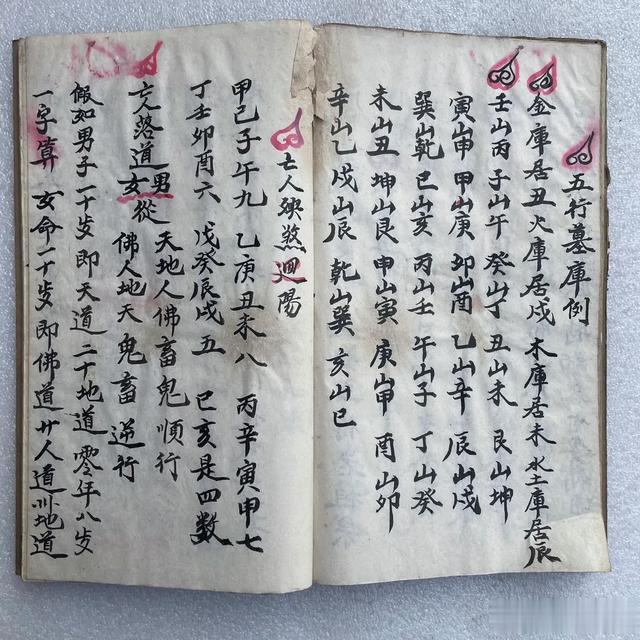 五行墓庫例
金庫居丑 火庫居戍 木庫居未 水土庫居辰
壬山丙 子山午 癸山丁 丑山未 艮山坤
寅山申 甲山庚 卯山酉 乙山辛 辰山戍
巽山乾 巳山亥 丙山壬 午山子 丁山癸
未山丑 坤山艮 申山寅 庚山甲 酉山卯
辛山乙 戍山辰 乾山巽 亥山巳
亡人殃煞迴陽
甲己子午九 乙庚丑未八 丙辛寅甲七
丁壬卯酉六 戊癸辰戍五 巳亥是四数
天地人佛畜鬼順行
亡人落道男女從
佛人地天鬼畜逆行
假如男子一十歩即天道二十地道零年八歩
一字算 女命一十歩即佛道廿人道卅地道